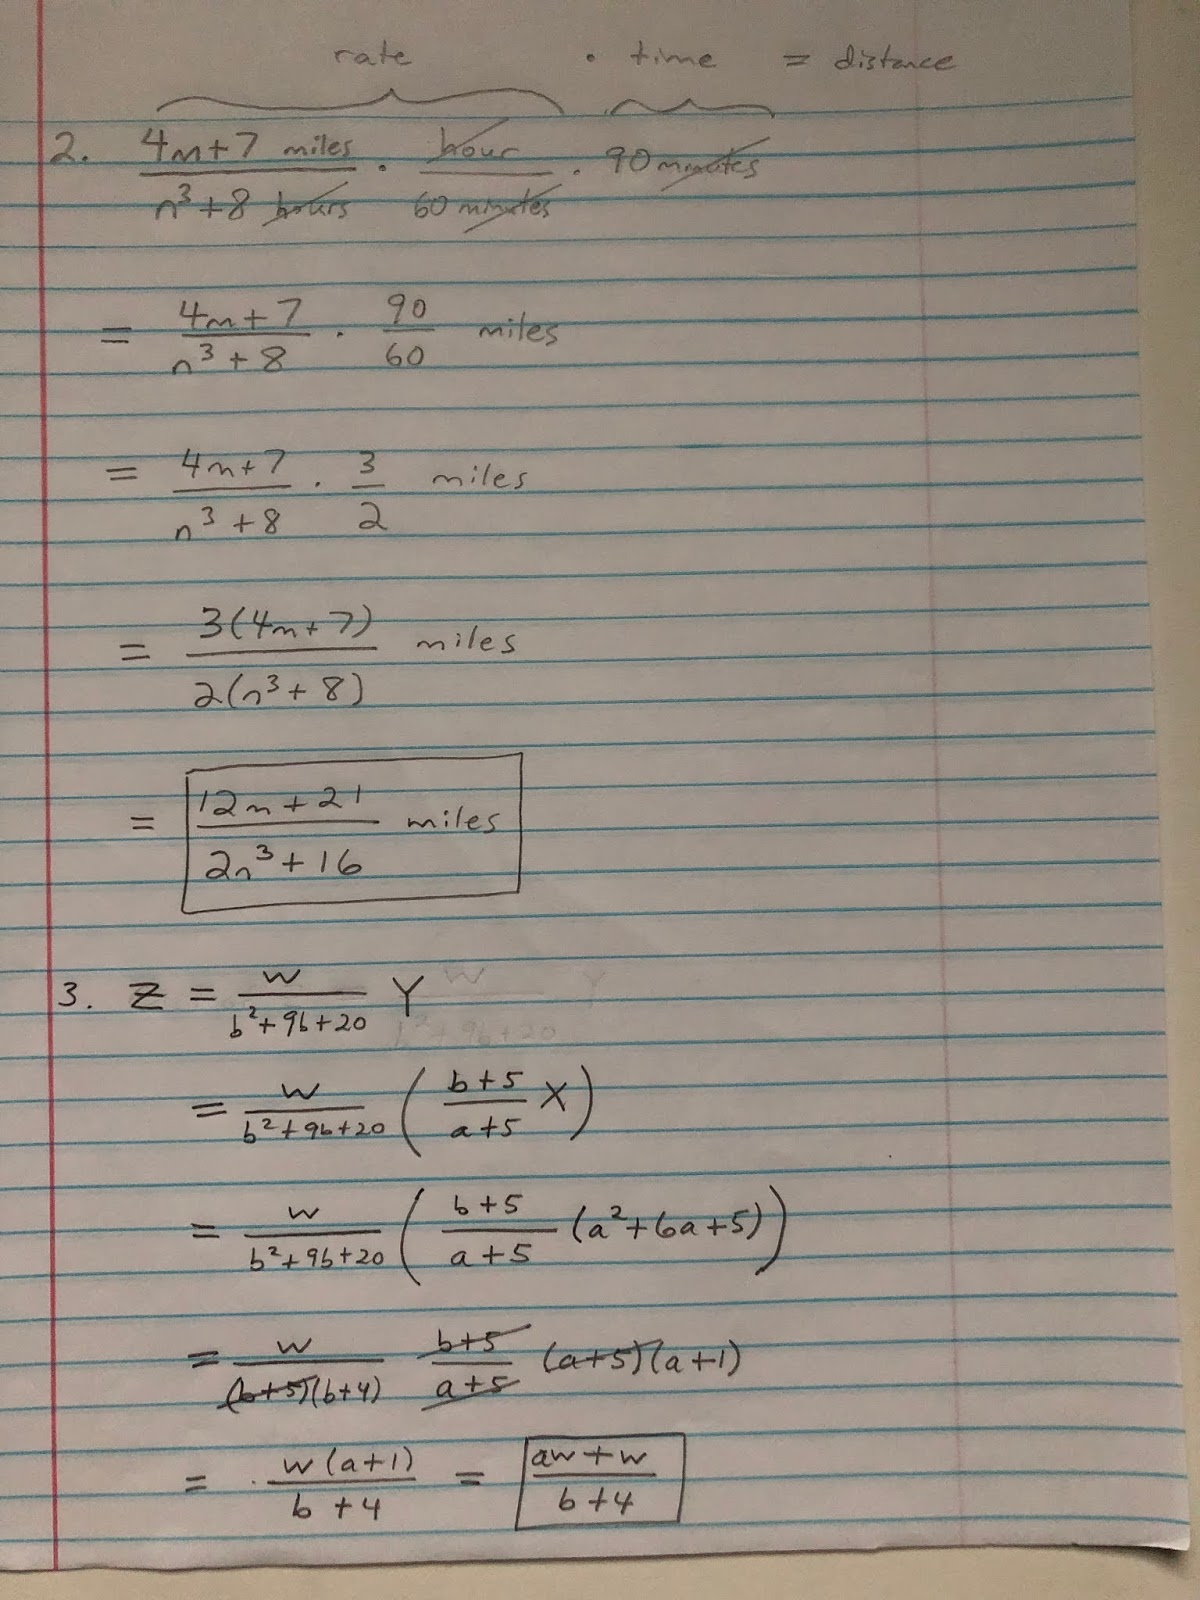 rate · time = distance
2. 4m+7 miles / n³+8 hours · hour / 60 minutes · 90 minutes
= 4m+7 / n³+8 · 90/60 miles
= 4m+7 / n³+8 · 3/2 miles
= 3(4m+7) / 2(n³+8) miles
= 12m+21 / 2n³+16 miles
3. Z = w / b²+9b+20 Y
= w / b²+9b+20 ( b+5 / a+5 X )
= w / b²+9b+20 ( b+5 / a+5 (a²+6a+5) )
= w / (b+5)(b+4) b+5 / a+5 (a+5)(a+1)
= w(a+1) / b+4 = aw+w / b+4